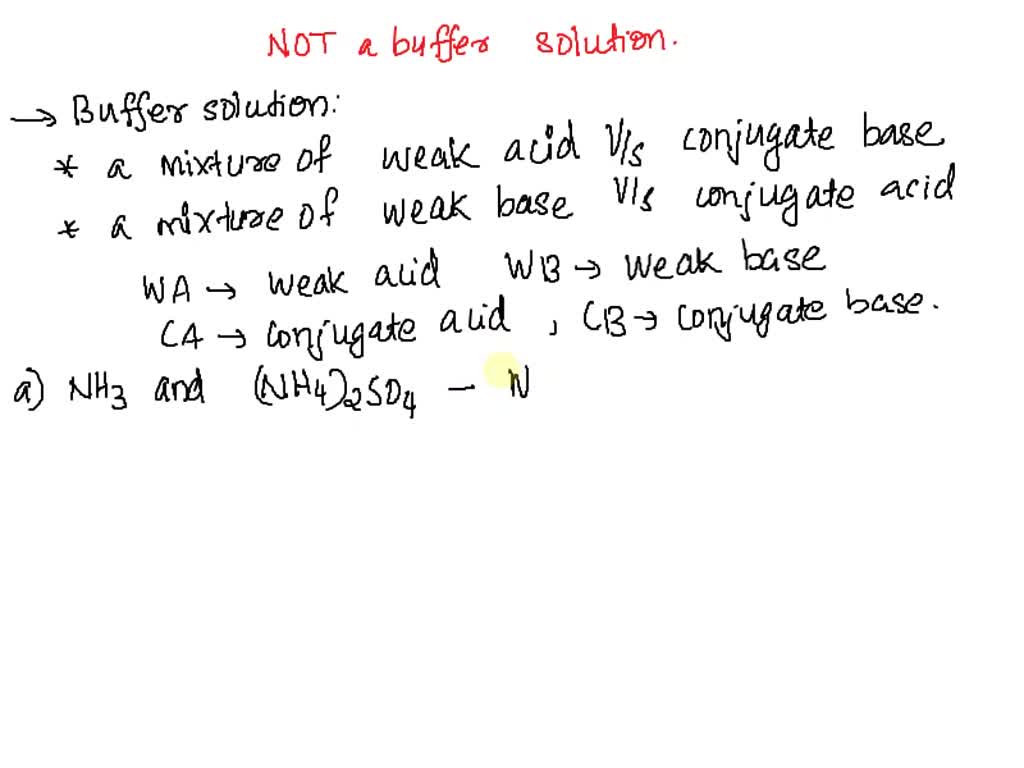 NOT a buffer solution.
→ Buffer solution:
* a mixture of weak acid V/s conjugate base
* a mixture of weak base V/s conjugate acid
WA → weak acid WB → weak base
CA → conjugate acid , CB → conjugate base.
a) NH3 and (NH4)2SO4 – N